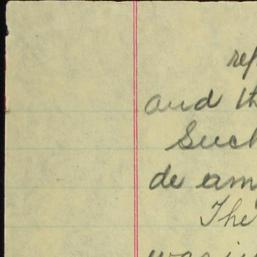 ref
and th
Such
de am
The